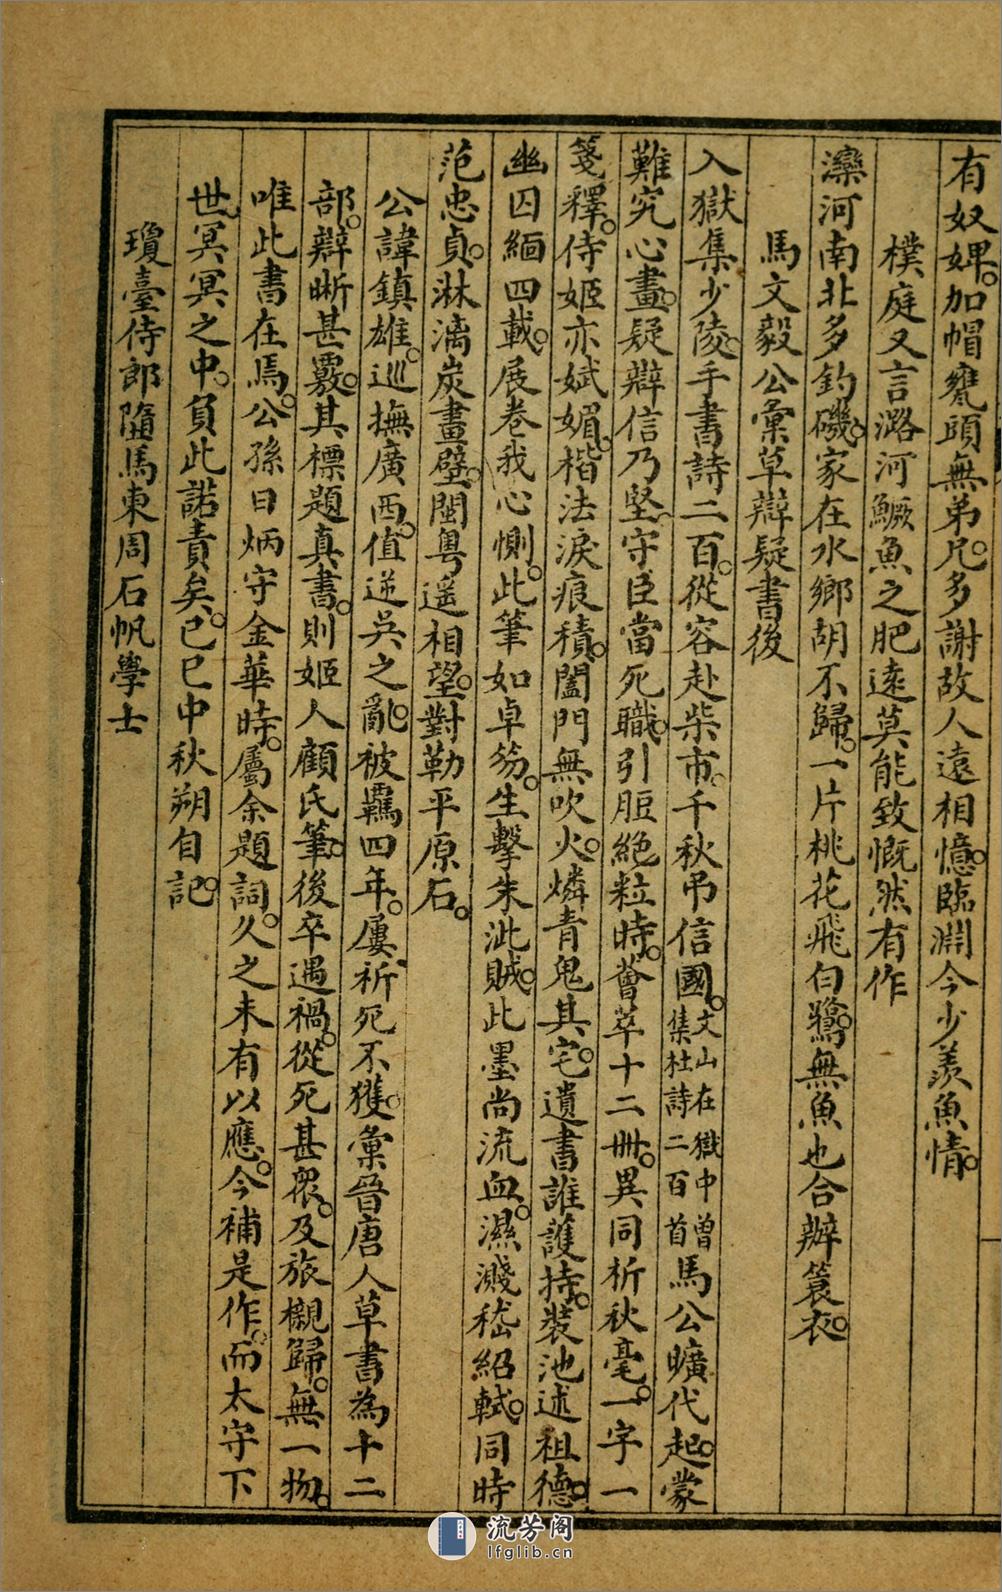 有奴婢。加帽甕頭無弟兄。多謝故人遠相憶。臨淵今少羨魚情。
樸庭又言潞河鱖魚之肥遠莫能致慨然有作
灤河南北多釣磯。家在水鄉胡不歸。一片桃花飛白鷺。無魚也合辦簑衣。
馬文毅公彙草辯疑書後
入獄集少陵。手書詩二百。從容赴柴市。千秋弔信國。文山在獄中曾集杜詩二百首馬公曠代起。蒙
難究心畫。疑辯信乃堅。守臣當死職。引脰絶粒時。薈萃十二冊。異同析秋毫。一字一
箋釋。侍姬亦斌媚。楷法淚痕積。闔門無吹火。燐青鬼其宅。遺書誰護持。裝池述祖德。
幽囚緬四載。展卷我心惻。此筆如卓笏。生擊朱泚賊。此墨尚流血。濕濺嵇紹軾。同時
范忠貞。淋漓炭畫壁。閩粤遥相望。對勒平原石。
公諱鎮雄。巡撫廣西。值逆吳之亂。被羈四年。屢祈死不獲。彙晉唐人草書為十二
部。辯晰甚覈。其標題真書。則姬人顧氏筆。後卒遇禍。從死甚衆。及旅櫬歸。無一物。
唯此書在焉。公孫日炳守金華時。屬余題詞。久之未有以應。今補是作。而太守下
世。冥冥之中。負此諾責矣。己巳中秋朔自記。
瓊臺侍郎隨馬東周石帆學士
流芳阁
lfglib.cn